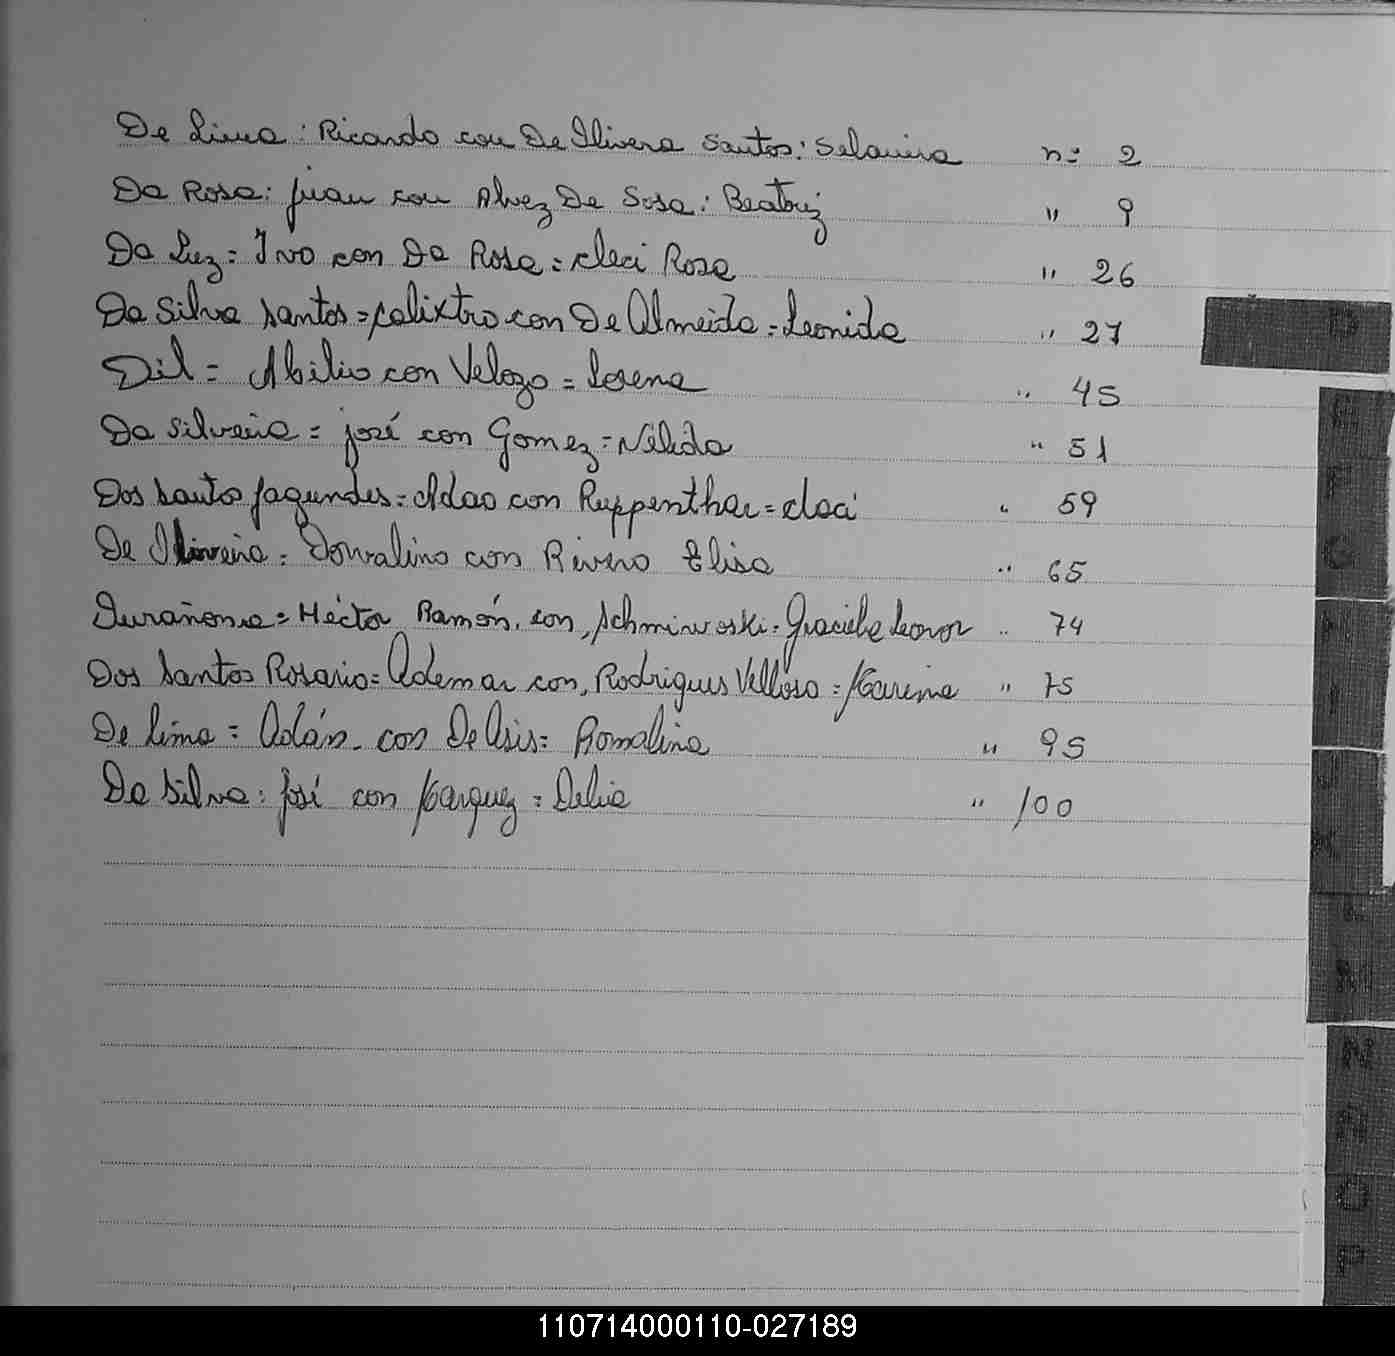 De Lima: Ricardo con De Olivera Santos: Selamira nº 2
Da Rosa: Juan con Alvez De Sosa: Beatriz " 9
Da Luz= Ivo con Da Rosa= cleci Rosa " 26
Da Silva Santos= Calixtro con De Almeida= Leonida " 27
Dil= Abilio con Velozo= Lorena " 45
Da Silveira= José con Gomez= Nélida " 51
Dos Santos Fagundes= Adao con Ruppenthar= claci " 59
De Oliveira= Dorvalino con Rivero Elisa " 65
Durañona= Héctor Ramón, con, Schmiwoski= Graciela Leonor " 74
Dos Santos Rosario= Ademar con, Rodrigues Velloso= Marina " 75
De Lima= Adán con De Asis= Romalina " 95
Da Silva: José con Marquez= Delia " 100
D
E
F
G
H
I
J
K
L
M
N
Ñ
O
P
110714000110-027189